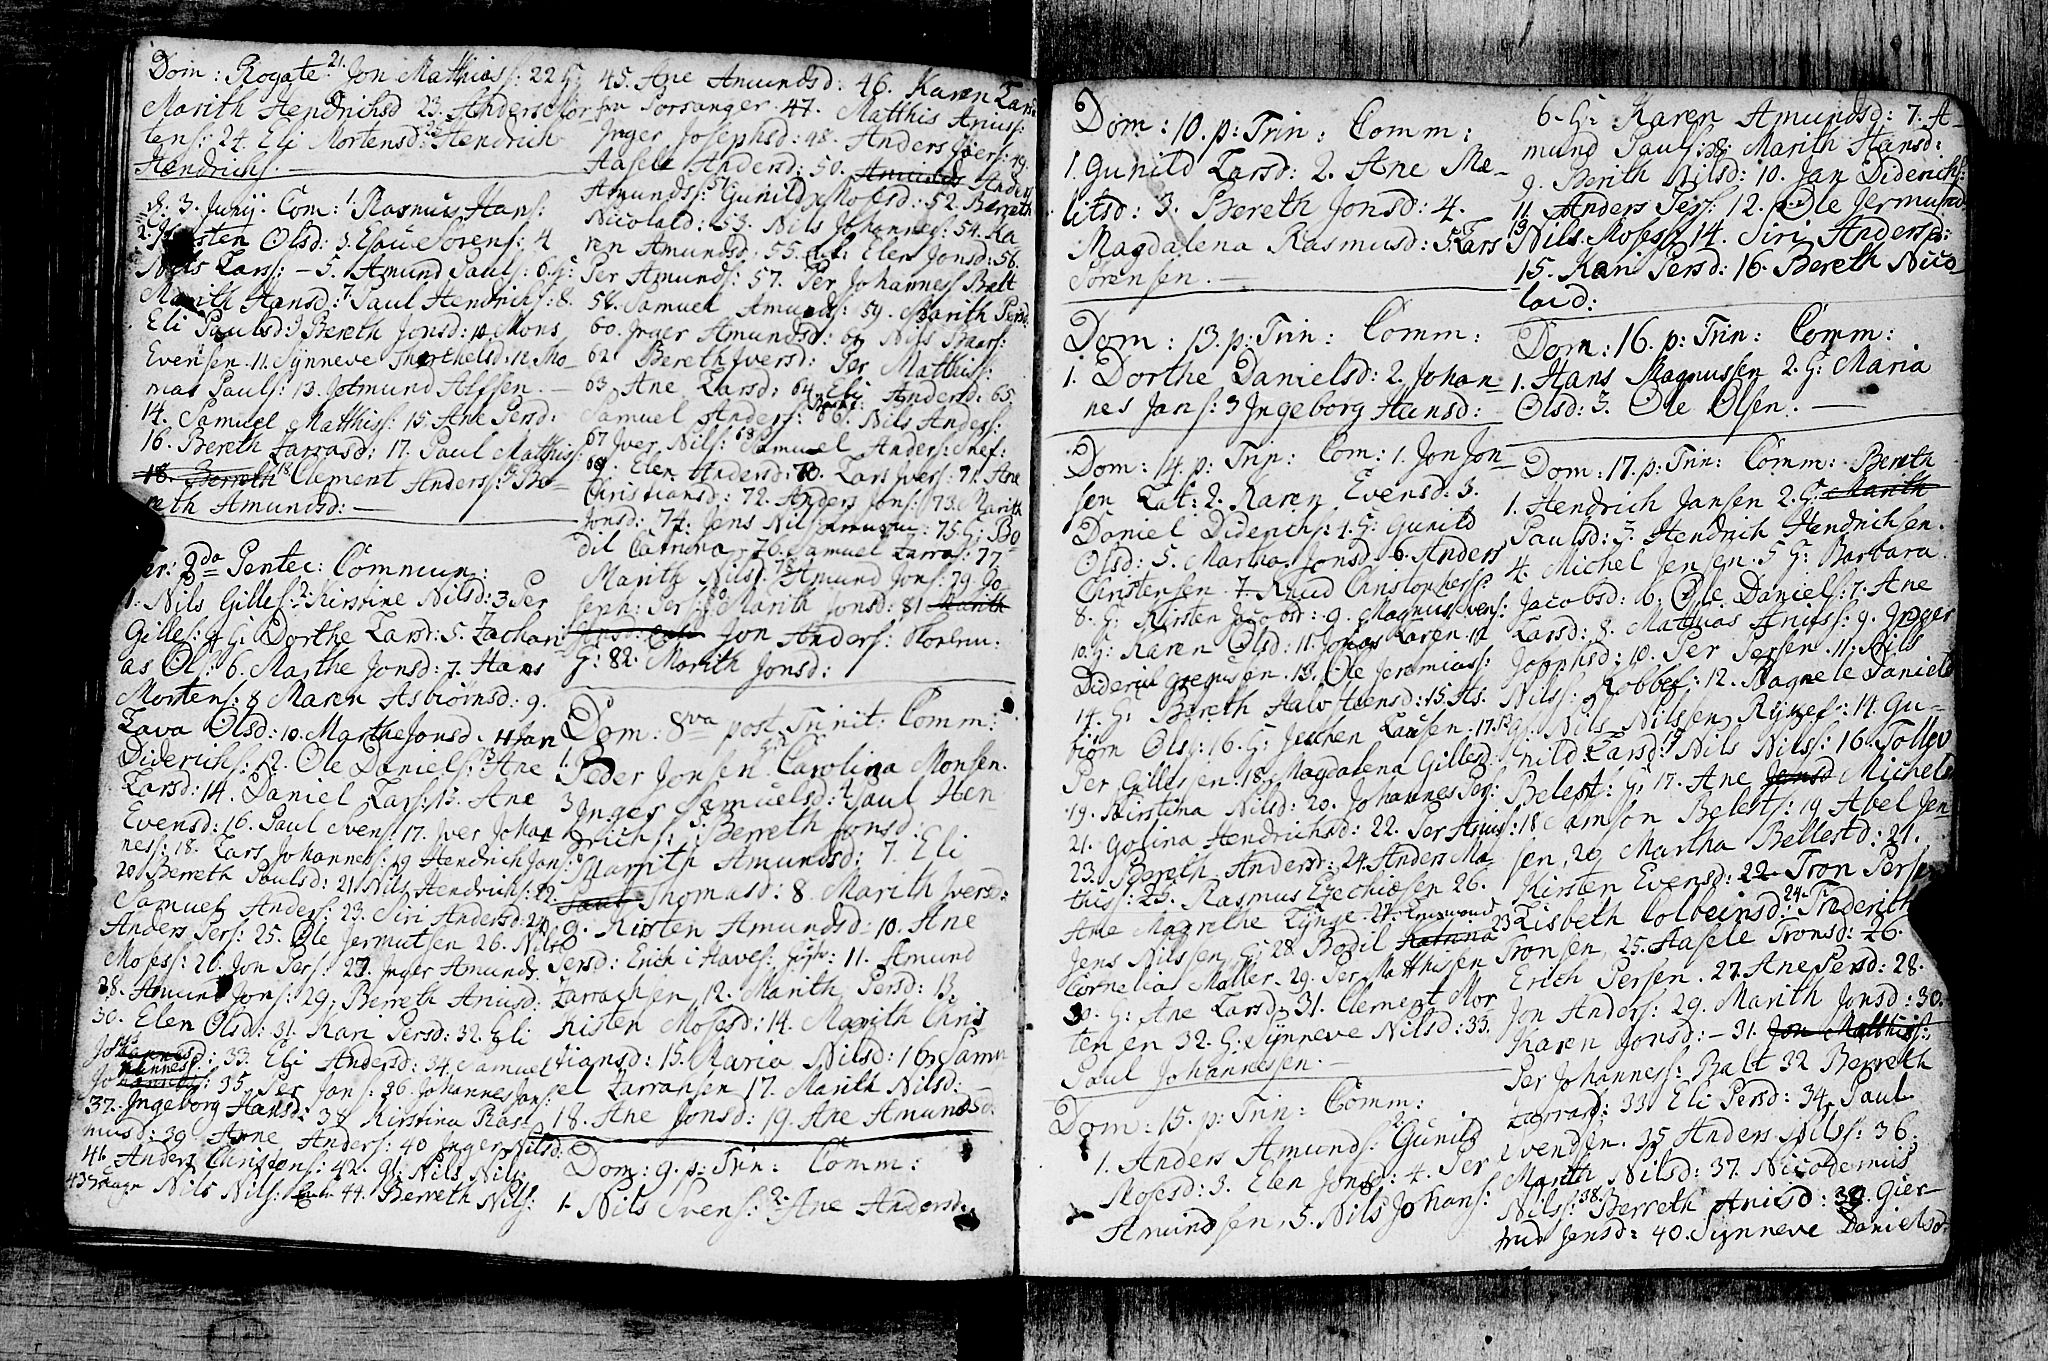 Dom: Rogate. 21. Jon Mathias: 22 G:
Marith Hendrichsd 23. Anders Mor
tens: 24. Eli Mortensd: Hendrich
Hendrichs. —
d. 3. Junij. Com: 1. Rasmus Hans:
2. Kirsten Olsd: 3. Esau Sörens: 4
Nils Lars: — 5. Amund Pauls: 6. G:
Marith Hansd: 7. Paul Hendrichs: 8.
Eli Paulsd: 9 Bereth Jonsd: 10. Mons
Evensen. 11. Synneve 12. Tho-
mas Pauls: 13. Jotmund Alfsen. —
14. Samuel Matthis: 15. Ane Persd:
16. Bereth Larrasd: 17. Paul Matthis:
18. Clement Anders: 19 Be-
reth Amundsd: —
Fer: 2da Pentec: Commun:
1. Nils Gilles: 2. Kirstine Nilsd: 3 Per
Gilles: 4 G: Dorthe Larsd: 5. Zachari
as Ols: 6. Marthe Jonsd: 7. Hans
Mortens: 8 Maren Asbiörnsd: 9.
Lava Olsd: 10. Marthe Jonsd. 11 Jan
Diderichs: 12. Ole Daniels: 13 Ane
Larsd: 14. Daniel Lars: 15. Ane
Evensd: 16. Paul Evens: 17. Iver Johan
nes: 18. Lars Johannes: 19 Hendrich Jans:
20. Berreth Paulsd: 21. Nils Hendrichs: 22.
Samuel Anders: 23. Siri Andersd: 24
Anders Pers: 25. Ole Jermutsen 26. Nils
Moses: 26. Jon Pers: 27. Inger Amunds.
28. Amund Jons: 29. Berreth Aniisd:
30. Elen Olsd: 31. Kari Persd: 32. Eli
33. Eli Andersd: 34. Samuel
35. Per Jans: 36. Johannes Jans:
37. Ingeborg Hansd: 38 Kirstina Ras-
musd: 39. Anne Anders: 40 Inger Nilsd:
41. Anders Christens: 42. G: Nils Nils:
43 Nils Nils: 44. Berreth Nils:
45. Ane Amundsd: 46. Karen Lars
fra Porsanger. 47. Matthis Arius:
Inger Josephsd: 48. Anders Ivers: 49.
Aasele Andersd: 50. Anders
Amunds: 51. Gunild Mosesd: 52. Berreth
Nicolaid: 53. Nils Johannes: 54. Ka
ren Amundsd: 55. Elen Jonsd: 56.
Per Amunds: 57. Per Johannes Balt
58. Samuel Amunds: 59. Marith Persd:
60. Inger Amundsd: 61 Nils Baars:
62. Bereth Iversd: Per Mathis:
63. Ane Larsd: 64. Eli Andersd: 65.
Samuel Anders: 66. Nils Anders:
67 Iver Nils: 68 Samuel Anders: Snef:
69. Elen Andersd: 70. Lars Ivers: 71. Ane
Christiansd: 72. Anders Jons: 73. Marith
Jonsd: 74. Jens Nils: 75. G: Bo
dil Catrina. 76. Samuel Larras: 77
Marith Nilsd: 78 Amund Jons: 79. Jo
seph: Pers: 80 Marith Jonsd: 81.
Jon Anders:
G: 82. Marith Jonsd:
Dom: 8va post Trinit: Comm:
1. Peder Jonsen 2. Carolina Monsen.
3 Inger Samuelsd: 4 Paul Hen
drichs: 5. Berreth Jonsd:
6 Marrith Amundsd: 7. Eli
Thomasd: 8 Marith Iversd:
9. Kirsten Amundsd: 10. Ane
Persd: Erich i Haves: 11. Amund
Larrachsen 12. Marith Persd: 13
Kisten Mosesd: 14. Marith Chris
tiansd: 15. Maria Nilsd: 16. Samu
el Larransen 17. Marith Nilsd: —
18. Ane Jonsd: 19. Ane Amundsd.
Dom: 9. p: Trin: Comm:
1. Nils Svens: 2. Ane Andersd:
Dom: 10. p: Trin: Comm:
1. Gunild Larsd: 2. Ane Me-
litsd: 3. Bereth Jonsd: 4.
Magdalena Rasmusd: 5. G: Lars
Sörensen. —
Dom: 13. p: Trin: Comm:
1. Dorthe Danielsd: 2. Johan-
nes Jans: 3 Ingeborg Hansd:
Dom: 14. p: Trin: Com: 1. Jon Jon
sen Lat: 2. Karen Evensd: 3.
Daniel Diderichs: 4. G: Gunild
Olsd: 5. Martha Jonsd 6. Anders
Christensen. 7. Knud Christophersen
8. G: Kirsten Jacobsd: 9. Magnus Evens:
10. G: Karen Olsd: 11. Jonas Karen. 12
Diderich Gregusen. 13. Ole Jeremias:
14. G: Bereth Halv Hansd: 15. As-
biörn Ols: 16. G: Jechen Lausen: 17.
Per Gillesen. 18. Magdalena Gillesd:
19. Kirstina Nilsd: 20. Johannes Pers:
21. Golina Hendrichsd: 22. Per Asmus:
23. Bereth Andersd: 24. Anders Ma-
this: 25. Rasmus Ezechiasen 26.
Ane Magrethe Lynge. 27.
Jens Nilssen, G: 28. Bodil
Cornelia Möller. 29. Per Matthissen
30. G: Ane Larsd: 31. Clement Mor
ten en 32. G: Synneve Nilsd: 33.
Paul Johannessen. —
Dom: 15. p: Trin: Comm:
1. Anders Amunds: 2. Gunild
Mosesd: 3. Elen Jonsd: 4. Per
Amundsen, 5. Nils Johans:
6. G: Karen Amundsd: 7. A-
mund Pauls: 8. Marith Hansd:
9. Berith Nilsd: 10. Jan Diderichs:
11 Anders Pers: 12. Ole Jermunds
13 Nils. Moses: 14. Siri Andersd:
15. Kari Persd: 16. Bereth Nico-
laid:
Dom: 16. p: Trin: Comm:
1. Hans Magnussen 2. G: Maria
Olsd: 3. Ole Olsen. —
Dom: 17. p: Trin: Comm: Bereth
1. Hendrich Jansen 2. G: Marith
Paulsd: 3. Hendrich Hendrichsen.
4. Michel Jensen. 5 G: Barbara
Jacobsd: 6. Ole Daniels: 7. Ane
Larsd: 8. Mathias Arius: 9. Inger
Josephsd: 10. Per Persen. 11. Nils
Nils: Kobbef: 12. Magnele Daniels
13. G: Nils Nilsen Rynef: 14. Gu-
nild Larsd: 15 Nils Nils: 16. Tollev
Belest: G: 17. Ane Jensd Michels
18 Samson Belests: 19 Abel Jen
sen, 20 Martha Bellestd: 21.
Kirsten Evensd: 22. Tron Perse
23 Lisbeth Colbeinsd: 24. Friderich
Tronsen, 25. Aasele Tronsd: 26.
Erich Persen. 27. Ane Persd: 28.
Jon Anders: 29. Marith Jonsd: 30.
Karen Jonsd: — 31. Jon Matthis:
Per Johannes: Balt 32 Berreth
Larrasd: 33. Eli Persd: 34. Paul
Evensen. 35 Anders Nils: 36.
Marith Nilsd: 37. Nicodemus
Nils: 38. Berreth Aniisd: 39. Gier-
trud Jensd: 40. Synneve Danielsd